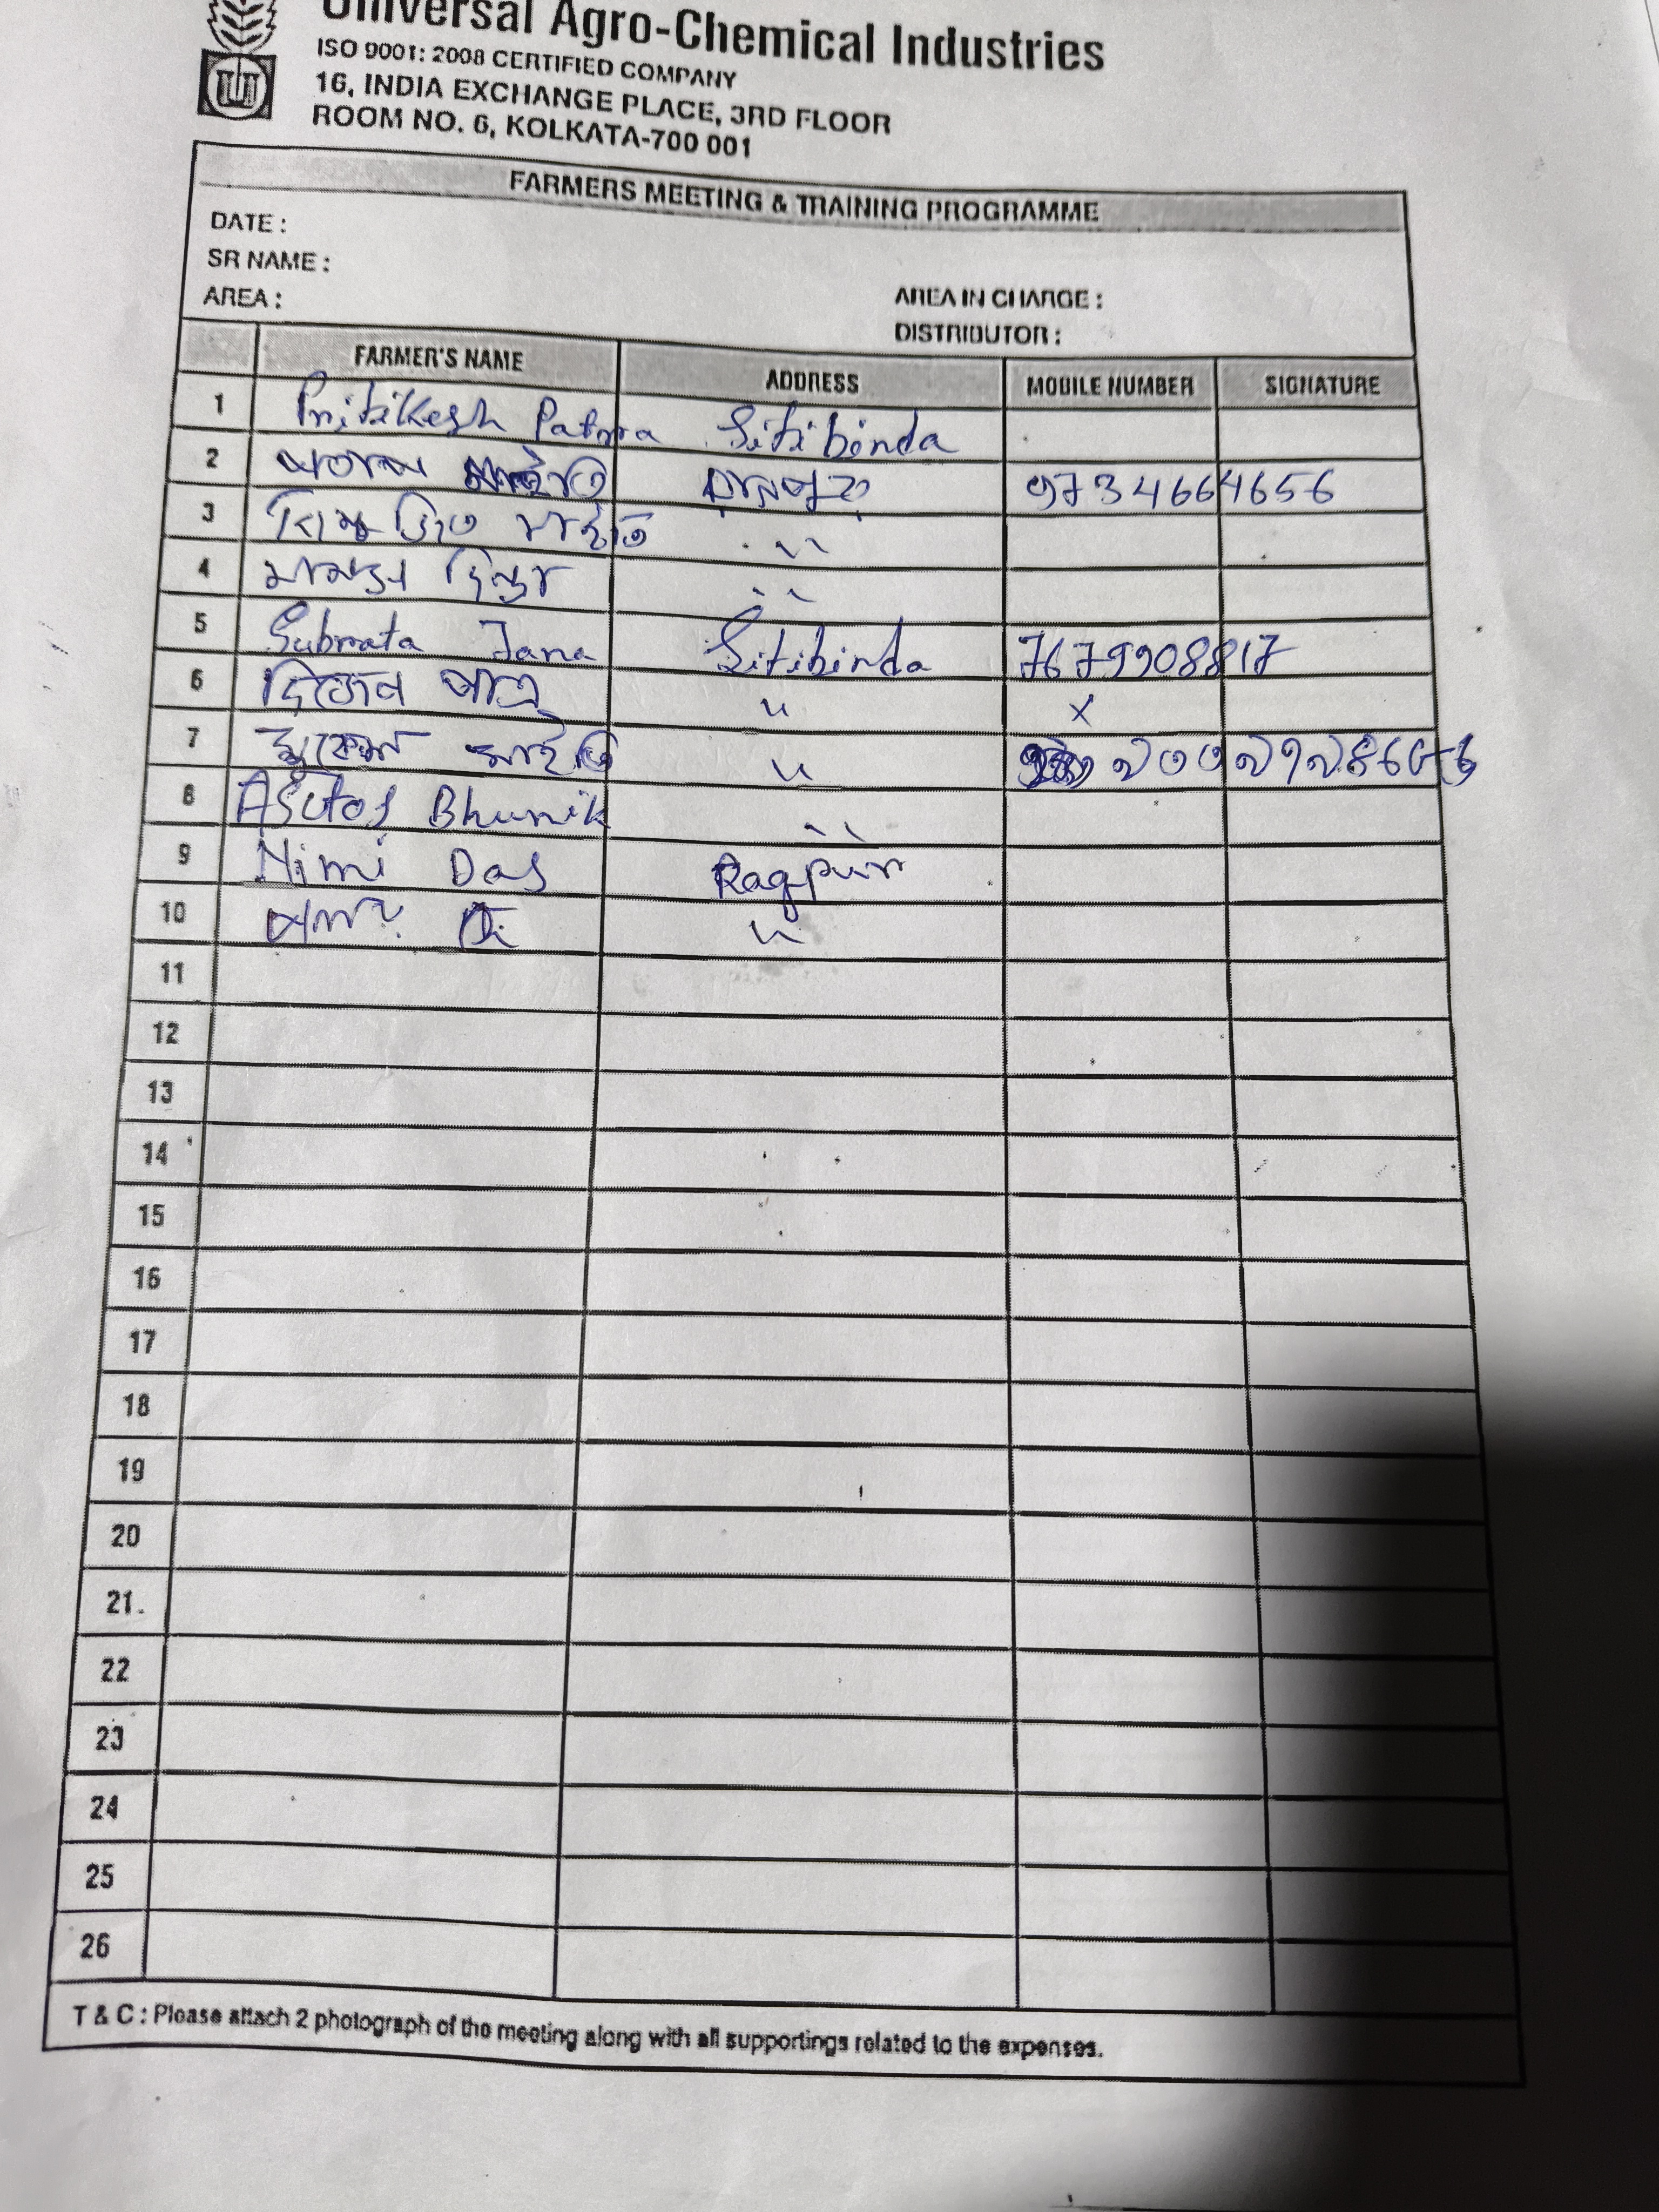 Universal Agro-Chemical Industries
ISO 9001: 2008 CERTIFIED COMPANY
16, INDIA EXCHANGE PLACE, 3RD FLOOR
ROOM NO. 6, KOLKATA-700 001
FARMERS MEETING & TRAINING PROGRAMME
DATE :
SR NAME :
AREA :
AREA IN CHARGE :
DISTRIBUTOR :
FARMER'S NAME ADDRESS MOBILE NUMBER SIGNATURE
1 Pritikesh Patra Sitibinda
2 মাইতি 9734664656
3 জিত মাইতি "
4 "
5 Subrata Jana Sitibinda 7679908817
6 দিজেন পাত্র " x
7 মাইতি "
8 Asutos Bhunik "
9 Nimi Das Ragpur
10 "
11
12
13
14
15
16
17
18
19
20
21.
22
23
24
25
26
T & C : Please attach 2 photograph of the meeting along with all supportings related to the expenses.